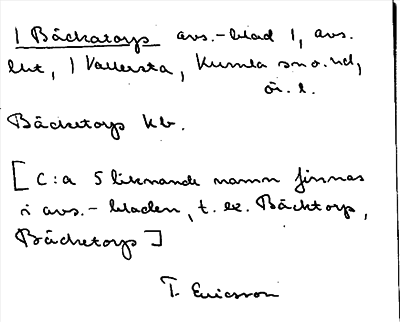 1 Bäckatorp avs.-blad 1, avs.
lht, 1 Vallersta, Kumla sn o. hd,
Ör. l.
Bäcketorp kb.
[C:a 5 liknande namn finnas
i avs.-bladen, t. ex. Bäcktorp,
Bäcketorp]
T. Ericsson